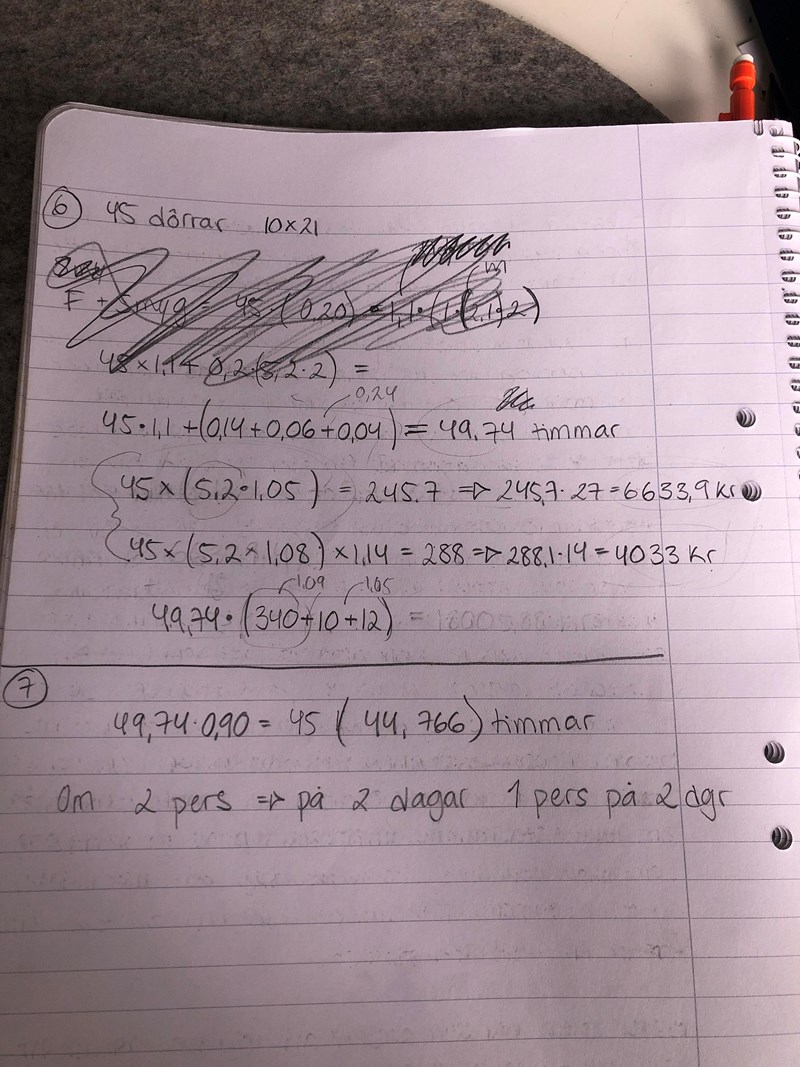 6 45 dörrar 10x21
F + Smyg = 45 · (0,20) = 1,1 · (1 · (2,1) 2)
m
48 x 1,14 0,2 (5,2 · 2) =
0,24
45 · 1,1 + (0,14 + 0,06 + 0,04) = 49,74 timmar
45 x (5,2 · 1,05) = 245.7 => 245,7 · 27 = 6633,9 kr
45 x (5,2 x 1,08) x 1,14 = 288 => 288,1 · 14 = 4033 Kr
1,09 1,05
49,74 · (340 + 10 + 12) =
7
49,74 · 0,90 = 45 ( 44,766) timmar
Om 2 pers => på 2 dagar 1 pers på 2 dgr